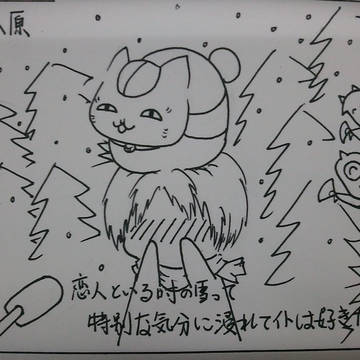 原
恋人といる時の雪って
特別な気分に浸れてイトは好き